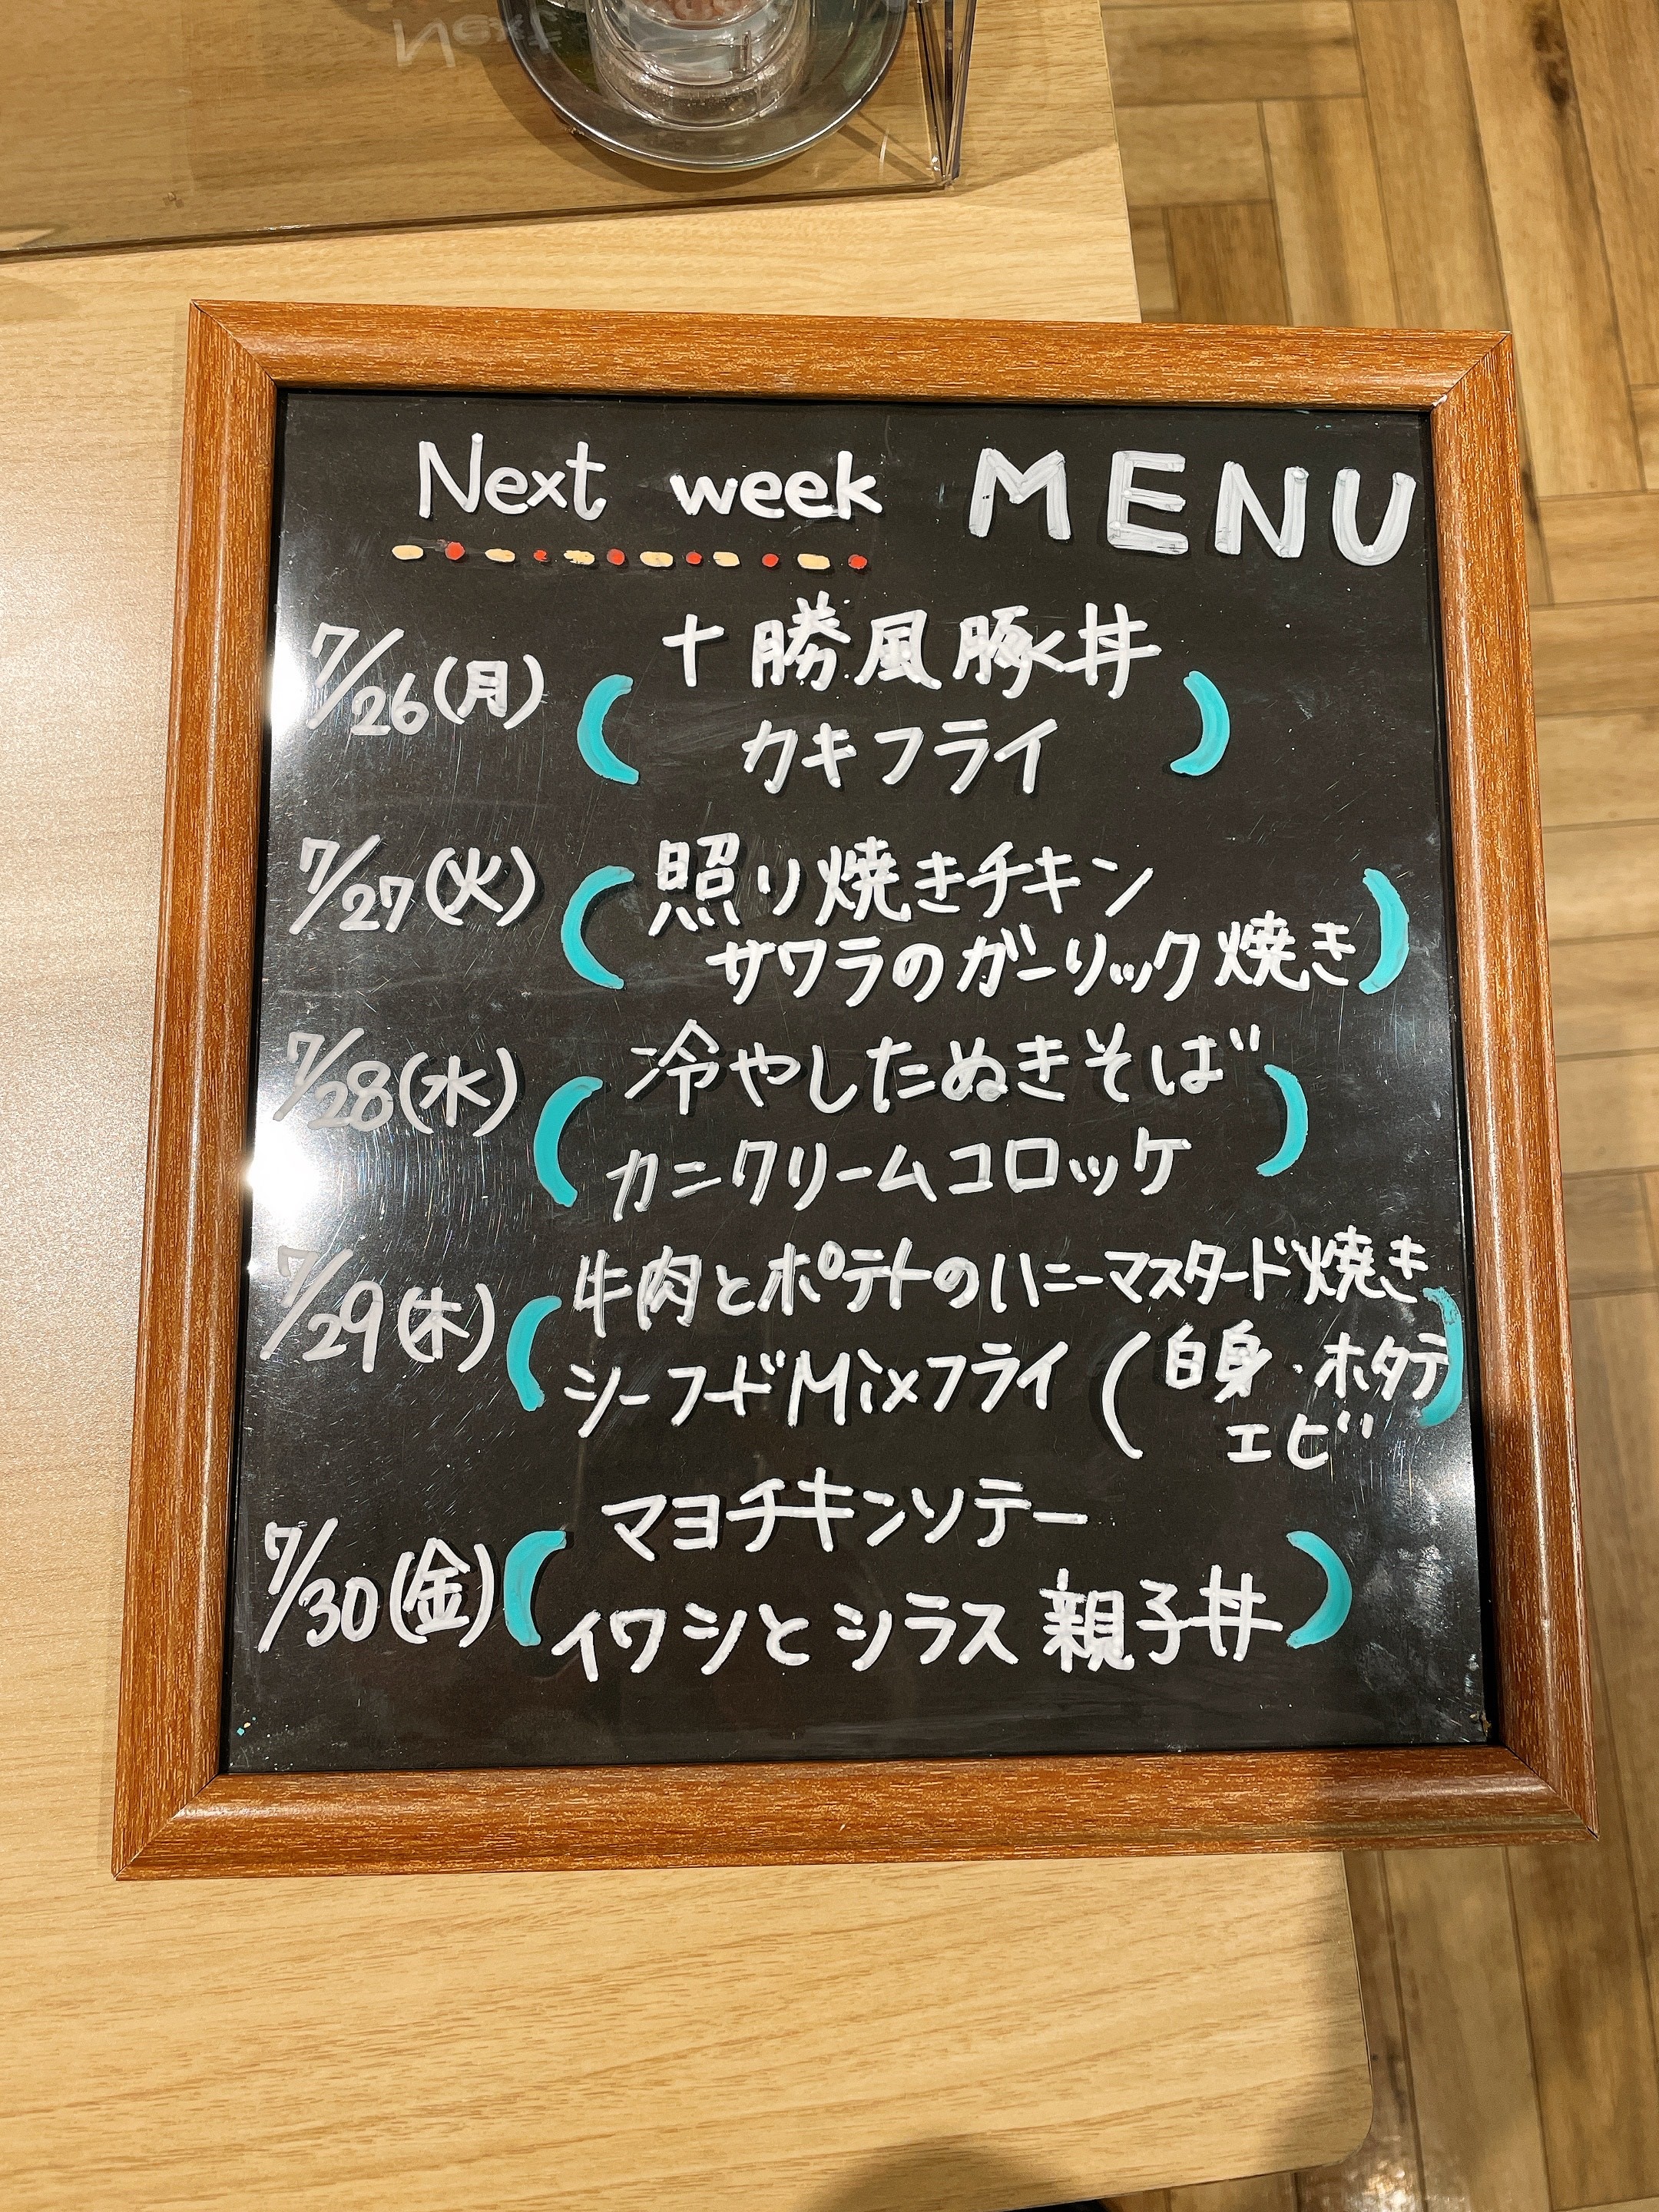 Next week MENU
7/26(月) 十勝風豚丼
カキフライ
7/27(火) 照り焼きチキン
サワラのガーリック焼き
7/28(水) 冷やしたぬきそば
カニクリームコロッケ
7/29(木) 牛肉とポテトのハニーマスタード焼き
シーフードMixフライ(白身・ホタテ
エビ
7/30(金) マヨチキンソテー
イワシとシラス親子丼